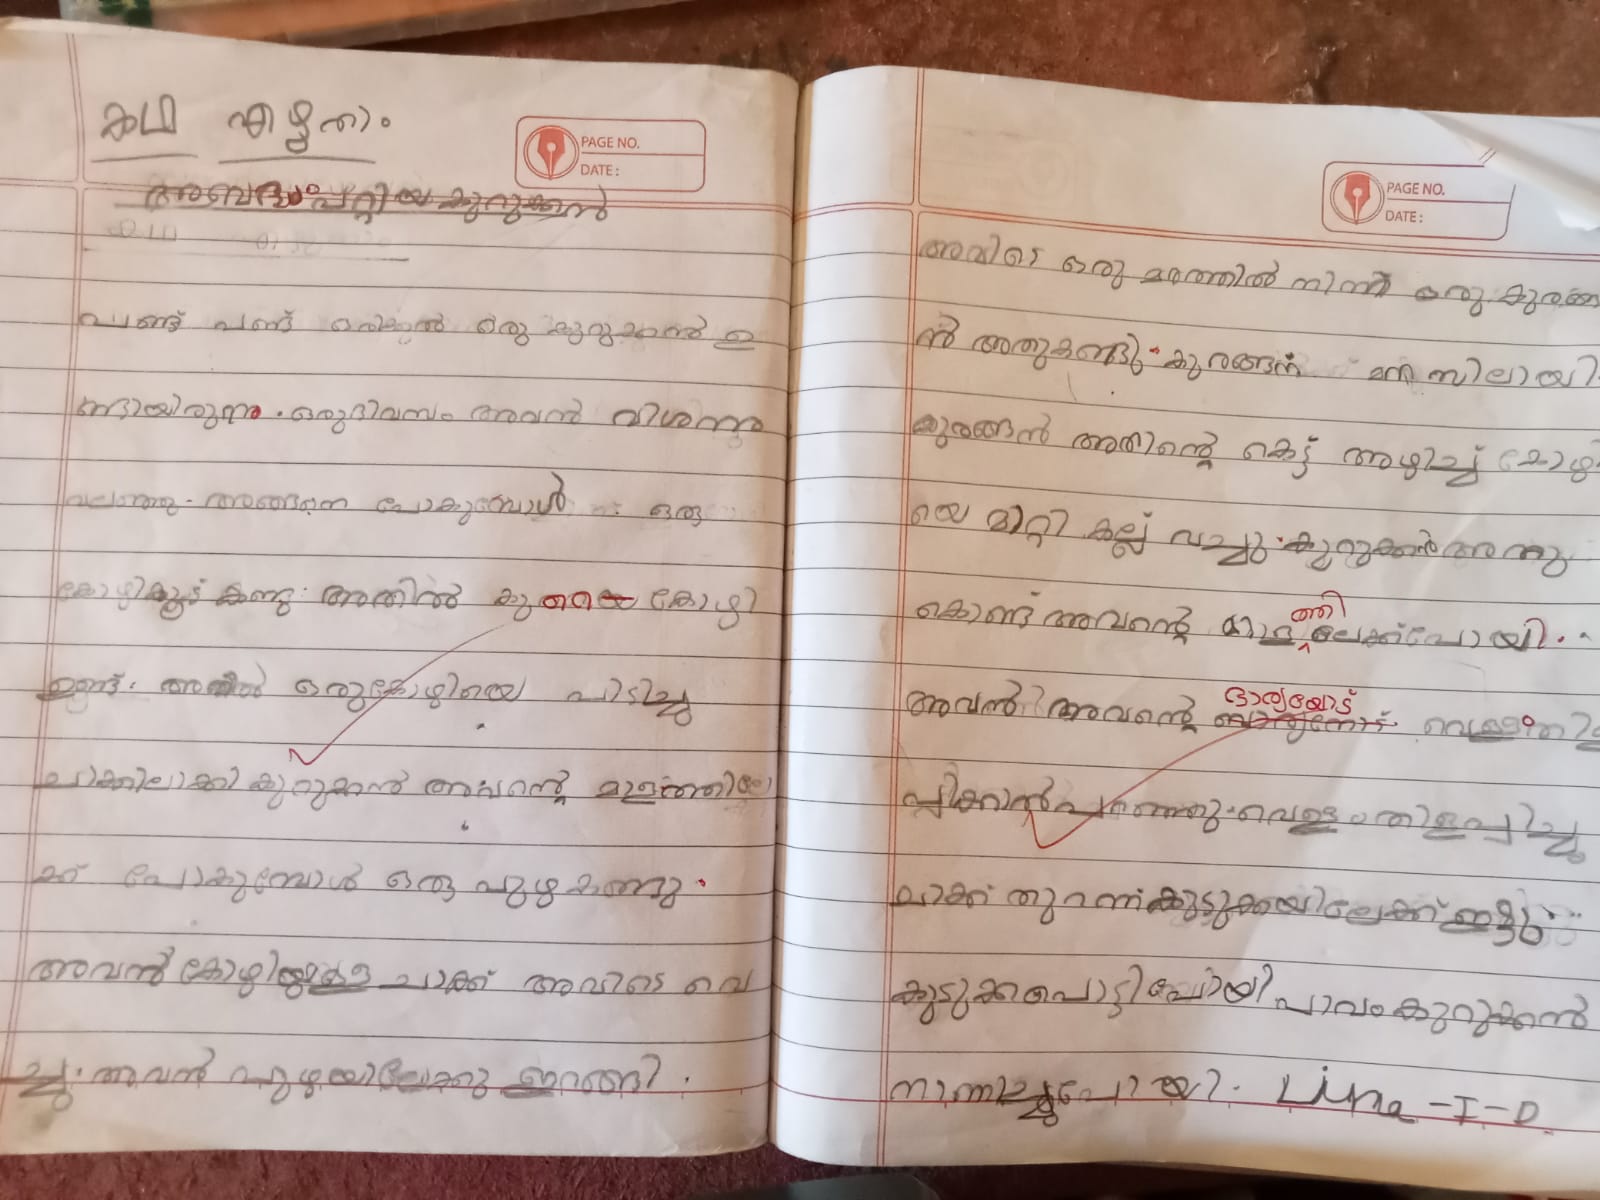 കഥ എഴുതാം
PAGE NO.
DATE:
അബദ്ധംപറ്റിയ കുറുക്കൻ
പണ്ട് പണ്ട് ഒരിക്കൽ ഒരു കുറുക്കൻ ഉ
ണ്ടായിരുന്നു. ഒരുദിവസം അവൻ വിശന്നു
വലഞ്ഞു. അങ്ങനെ പോകുബോൾ ഒരു
കോഴികൂട് കണ്ടു. അതിൽ കുറേ കോഴി
ഉണ്ട്. അതിൽ ഒരുകോഴിയെ പിടിച്ചു
ചാക്കിലാക്കി കുറുക്കൻ അവന്റെ മാളത്തിലേ
ക്ക് പോകുമ്പോൾ ഒരു പുഴ കണ്ടു.
അവൻ കോഴിയുള്ള ചാക്ക് അവിടെ വെ
ച്ചു. അവൻ പുഴയിലേക്കു ഇറങ്ങി.
PAGE NO.
DATE:
അവിടെ ഒരു മരത്തിൽ നിന്ന് ഒരു കുരങ്ങ
ൻ അതുകണ്ടു. കുരങ്ങന് മനസിലായി.
കുരങ്ങൻ അതിന്റെ കെട്ട് അഴിച്ച് കോഴി
യെ മാറ്റി കല്ല് വച്ചു. കുറുക്കൻ അതു
കൊണ്ട് അവന്റെ മാളത്തിലേക്ക് പോയി.
അവൻ അവന്റെ ഭാര്യയോട് വെള്ളം തിള
പ്പിക്കാൻ പറഞ്ഞു. വെള്ളം തിളപ്പിച്ചു
ചാക്ക് തുറന്ന് കുടുക്കയിലേക്ക് ഇട്ടു.
കുടുക്ക പൊട്ടി പോയി പാവം കുറുക്കൻ
നാണിച്ചുപോയി. Liya - I - D